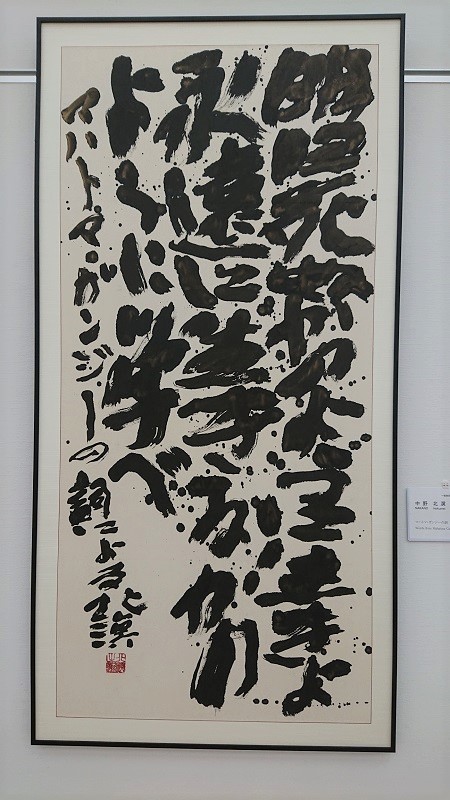 明日死ぬかのように生きよ
永遠に生きるかの
ように学べ
マハトマ・ガンジーの詞による 北溟
中野 北溟